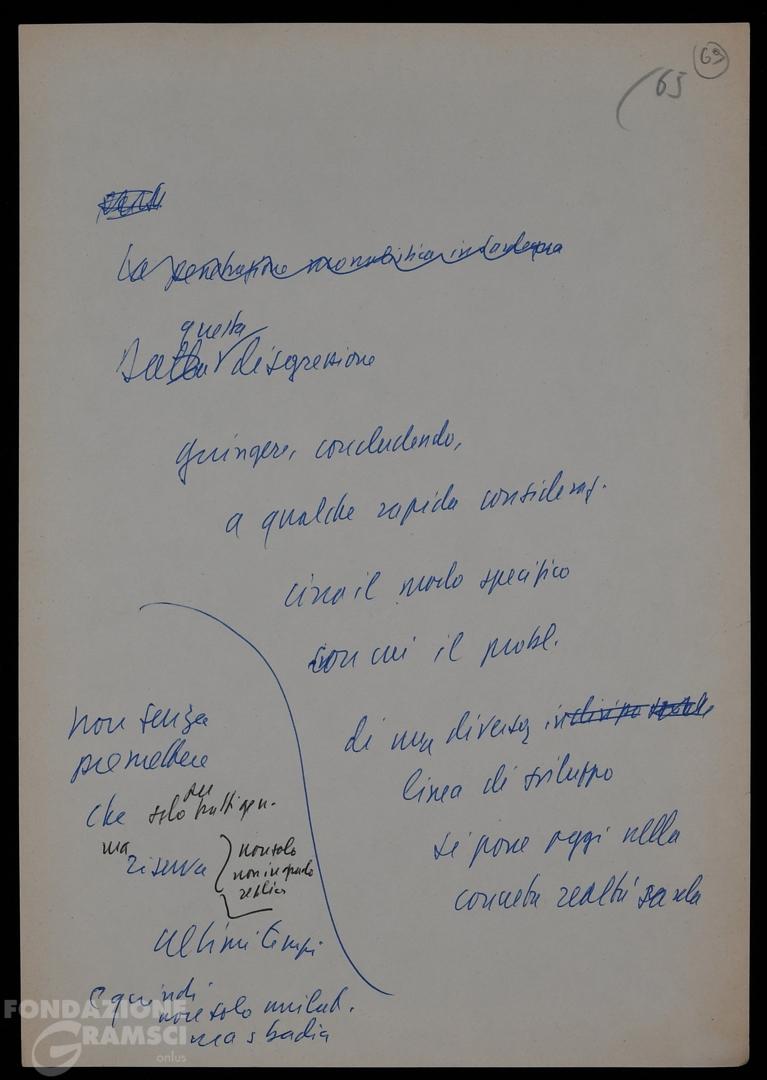 69
65
La penetrazione monopolistica in Sardegna
questa
Fatta digressione
giungere, concludendo,
a qualche rapida consideraz.
circa il modo specifico
con cui il probl.
di una diversa
linea di sviluppo
si pone oggi nella
concreta realtà sarda
non senza
premettere
che solo per tratti gen.
ma
riserva
non solo
non in quado
ultimi tempi
e quindi
non solo unilat.
ma sbadia
FONDAZIONE
GRAMSCI
onlus